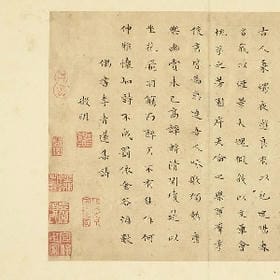 古人秉燭夜遊良有以也況陽春
召我以煙景大塊假我以文章會
桃李之芳園序天倫之樂事羣季
俊秀皆為惠連吾人詠歌獨慚康
樂幽賞未已高談轉清開瓊筵以
坐花飛羽觴而醉月不有佳作何
伸雅懷如詩不成罰依金谷酒數
偶書李青蓮集
徵明